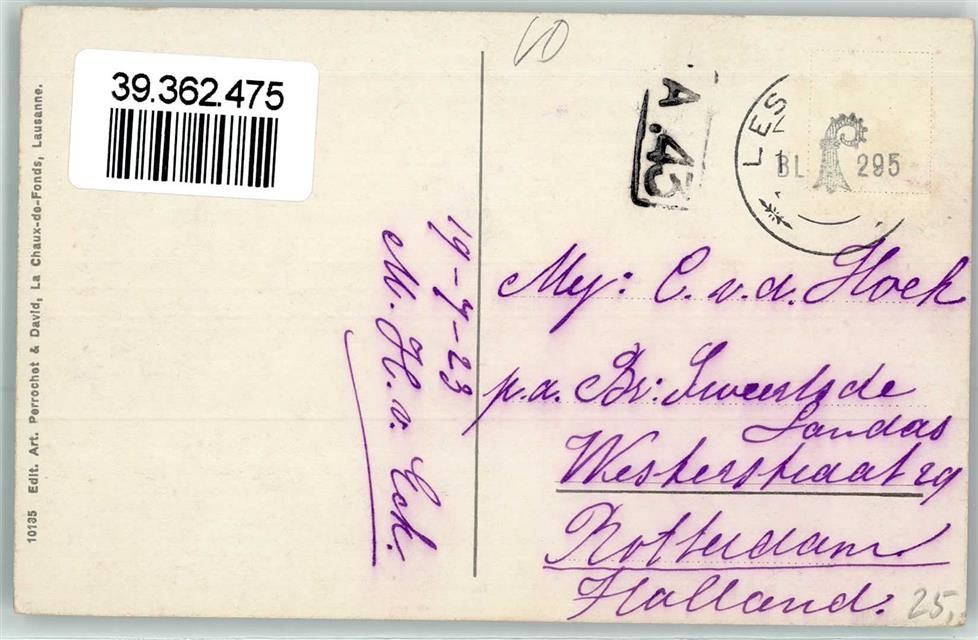 39.362.475
10135 Edit. Art. Perrochet & David, La Chaux-de-Fonds, Lausanne.
A.43
LES
BL 295
19-7-23
M. H. v. Eck.
Mej: C. v. d. Hoek
p.a. Br: Sweerts de
Landas
Westerstraat 29
Rotterdam
Holland.
25,-